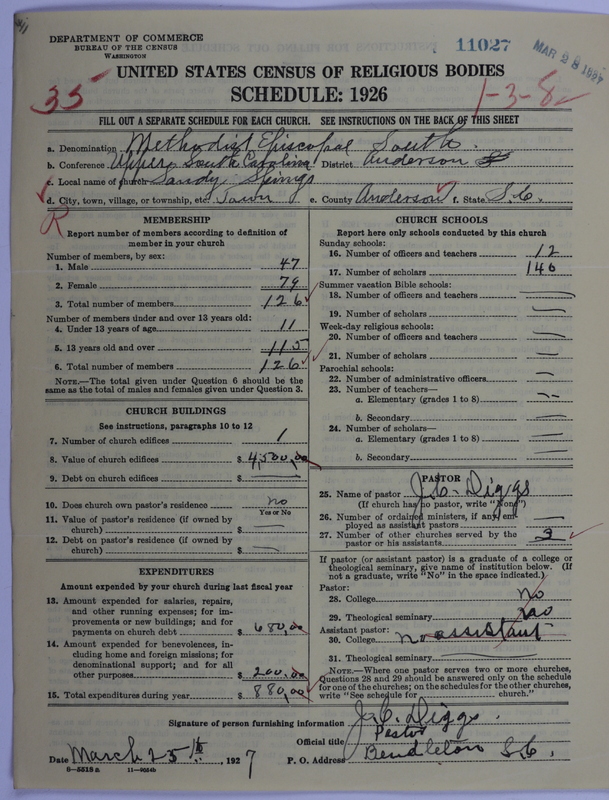 DEPARTMENT OF COMMERCE
BUREAU OF THE CENSUS
WASHINGTON
11027
MAR 28 1927
UNITED STATES CENSUS OF RELIGIOUS BODIES
35
SCHEDULE: 1926
1-3-8
FILL OUT A SEPARATE SCHEDULE FOR EACH CHURCH. SEE INSTRUCTIONS ON THE BACK OF THIS SHEET
a. Denomination Methodist Episcopal South.
b. Conference Upper South Carolina District Anderson
c. Local name of church Sandy Springs
d. City, town, village, or township, etc. Town e. County Anderson f. State S.C.
R
MEMBERSHIP
Report number of members according to definition of member in your church
Number of members, by sex:
1. Male 47
2. Female 79
3. Total number of members 126
Number of members under and over 13 years old:
4. Under 13 years of age 11
5. 13 years old and over 115
6. Total number of members 126
NOTE.—The total given under Question 6 should be the same as the total of males and females given under Question 3.
CHURCH BUILDINGS
See instructions, paragraphs 10 to 12
7. Number of church edifices 1
8. Value of church edifices $ 4,500,00
9. Debt on church edifices $
10. Does church own pastor's residence no
Yes or No
11. Value of pastor's residence (if owned by church) $
12. Debt on pastor's residence (if owned by church) $
EXPENDITURES
Amount expended by your church during last fiscal year
13. Amount expended for salaries, repairs, and other running expenses; for improvements or new buildings; and for payments on church debt $ 680,00
14. Amount expended for benevolences, including home and foreign missions; for denominational support; and for all other purposes $ 200.00
15. Total expenditures during year $ 880,00
CHURCH SCHOOLS
Report here only schools conducted by this church
Sunday schools:
16. Number of officers and teachers 12
17. Number of scholars 140
Summer vacation Bible schools:
18. Number of officers and teachers
19. Number of scholars
Week-day religious schools:
20. Number of officers and teachers
21. Number of scholars
Parochial schools:
22. Number of administrative officers
23. Number of teachers—
a. Elementary (grades 1 to 8)
b. Secondary
24. Number of scholars—
a. Elementary (grades 1 to 8)
b. Secondary
PASTOR
25. Name of pastor J.C. Diggs
(If church has no pastor, write "None")
26. Number of ordained ministers, if any, employed as assistant pastors
27. Number of other churches served by the pastor or his assistants 3
If pastor (or assistant pastor) is a graduate of a college or theological seminary, give name of institution below. (If not a graduate, write "No" in the space indicated.)
Pastor:
28. College No
29. Theological seminary no
Assistant pastor:
30. College no assistant
31. Theological seminary
NOTE.—Where one pastor serves two or more churches, Questions 28 and 29 should be answered only on the schedule for one of the churches; on the schedules for the other churches, write "See schedule for church."
Signature of person furnishing information J.C. Diggs.
Official title Pastor
Date March 25th, 1927 P. O. Address Pendleton S.C.